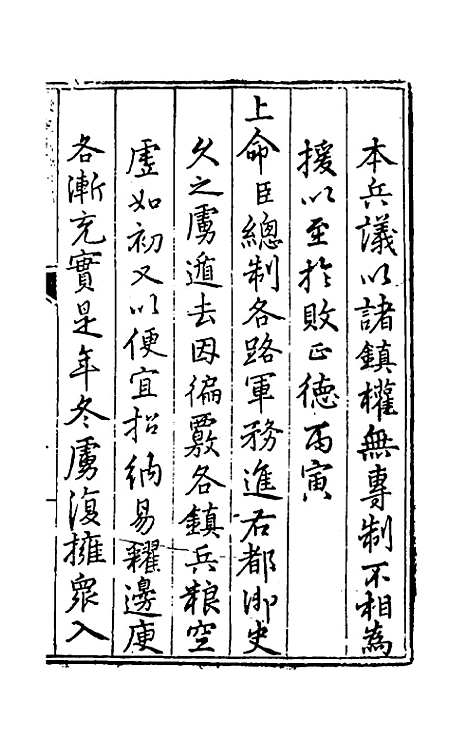 本兵議以諸鎮權無專制不相為
援以至於敗正德丙寅
上命臣總制各路軍務進右都御史
久之虜遁去因徧覈各鎮兵粮空
虛如初又以便宜招納易糴邊庾
各漸充實是年冬虜復擁眾入